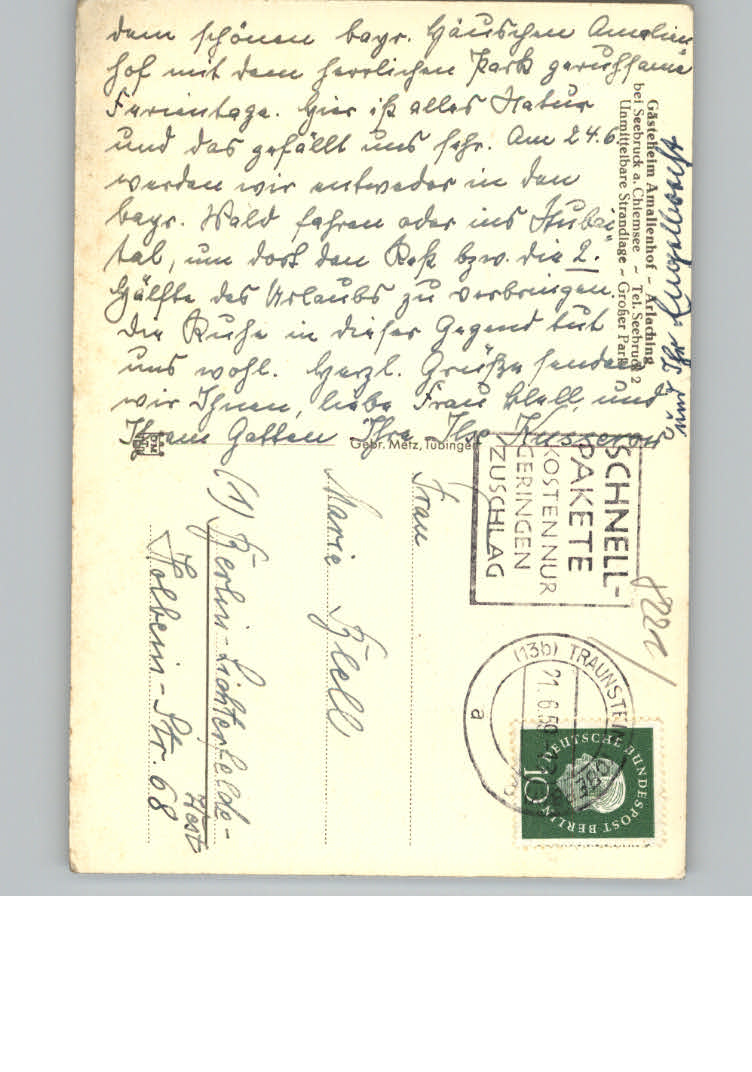 dem schönen bayr. Häuschen „Amalien
hof mit dem herrlichen Park geruhsame
Ferientage. Hier ist alles Natur
und das gefällt uns sehr. Am 24.6.
werden wir entweder in den
bayr. Wald fahren oder ins Stubai
tal, um dort den Rest bzw. die 2.
Hälfte des Urlaubs zu verbringen.
Die Ruhe in dieser Gegend tut
uns wohl. Herzl. Grüße senden
wir Ihnen, liebe Frau Blell und
Ihrem Gatten Ihre
Gästeheim Amalienhof – Arlaching
bei Seebruck a. Chiemsee – Tel. Seebruck 2
Unmittelbare Strandlage – Großer Park
Gebr. Metz, Tübingen
SCHNELL-
PAKETE
KOSTEN NUR
GERINGEN
ZUSCHLAG
(13b) TRAUNSTEIN
21.6.59
a
DEUTSCHE BUNDESPOST BERLIN
10
8221
Frau
Marie Blell
(1) Berlin-Lichterfelde-
West
Holbein-Str. 68